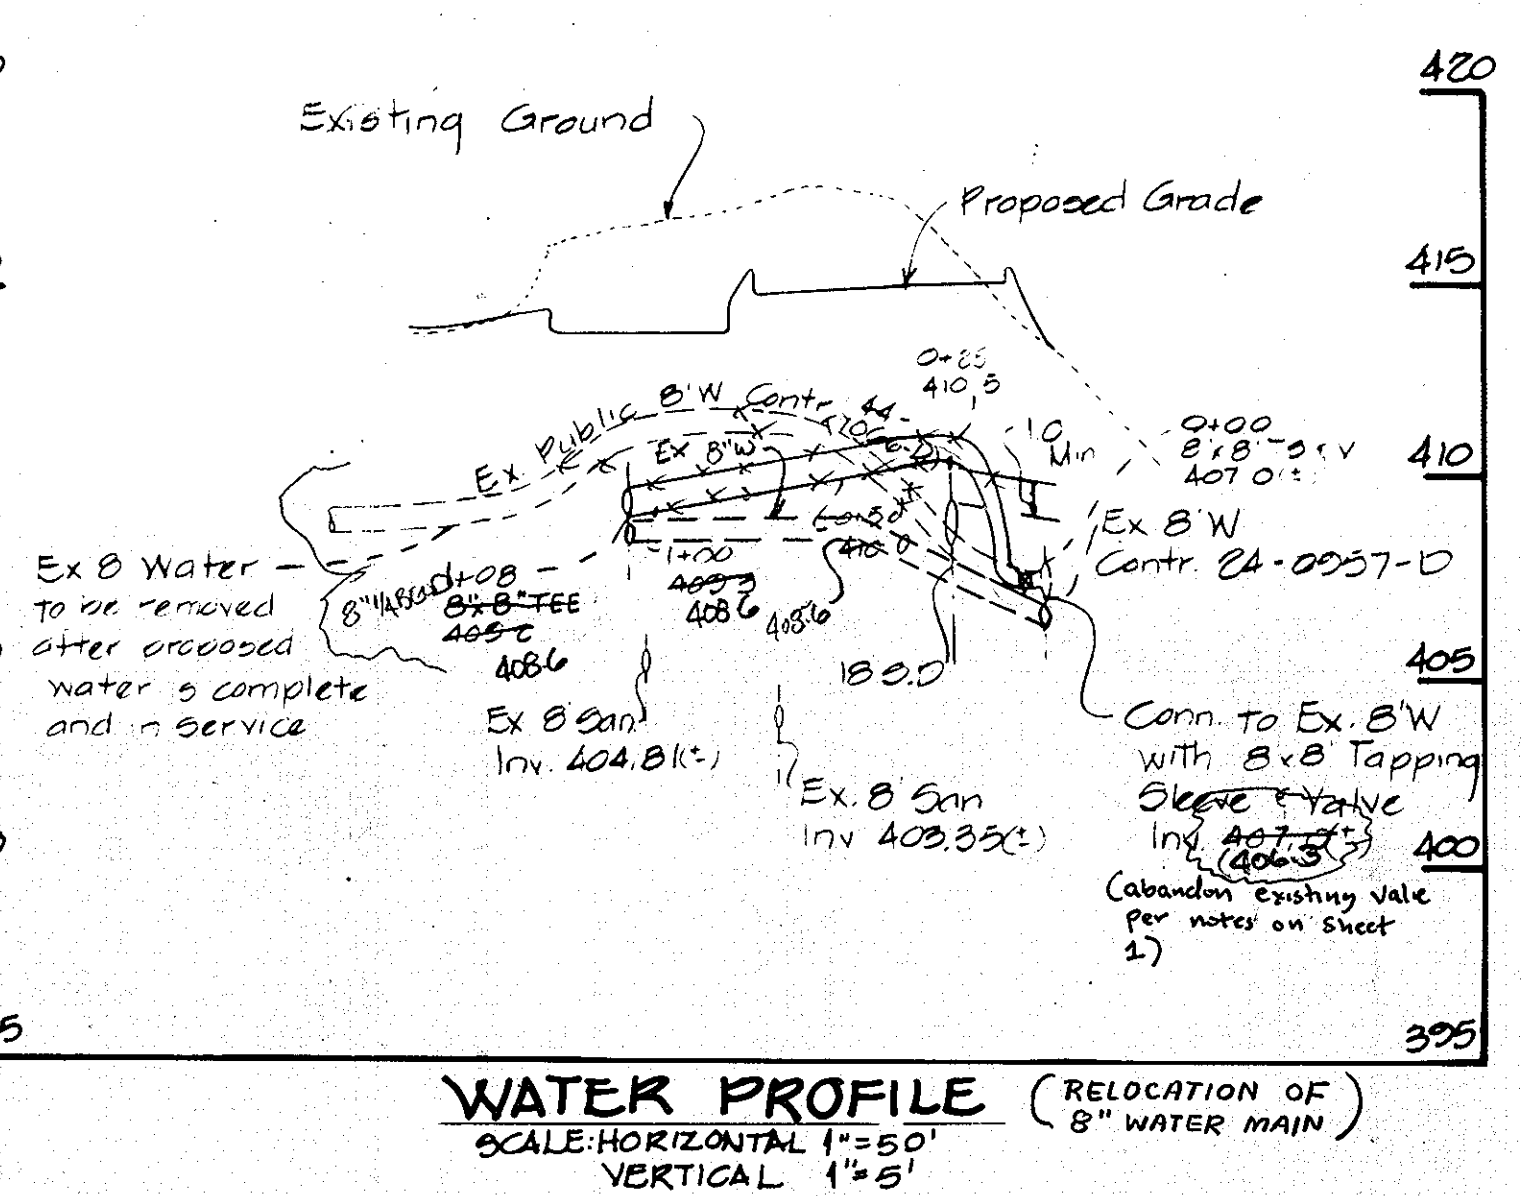 420
Existing Ground
Proposed Grade
415
0+25
410.5
Ex Public 8"W Contr. 44-
Ex 8"W
1.0
Min
0+00
407.0(±)
410
Ex 8"W
Contr. 24-0957-D
Ex 8 Water
to be removed
after proposed
water is complete
and in service
8"
1+08
8"x8" TEE
408.6
1+00
409.3
408.6
0+50
410.0
408.6
18 S.D
405
Ex 8 San
Inv. 404.81(±)
Ex. 8 San
Inv 403.35(±)
Conn. to Ex. 8"W
with 8x8 Tapping
Sleeve & Valve
Inv. 407.0(±)
(406.3
400
(abandon existing valve
per notes on sheet
1)
5
395
WATER PROFILE (RELOCATION OF
8" WATER MAIN)
SCALE: HORIZONTAL 1"=50'
VERTICAL 1"=5'